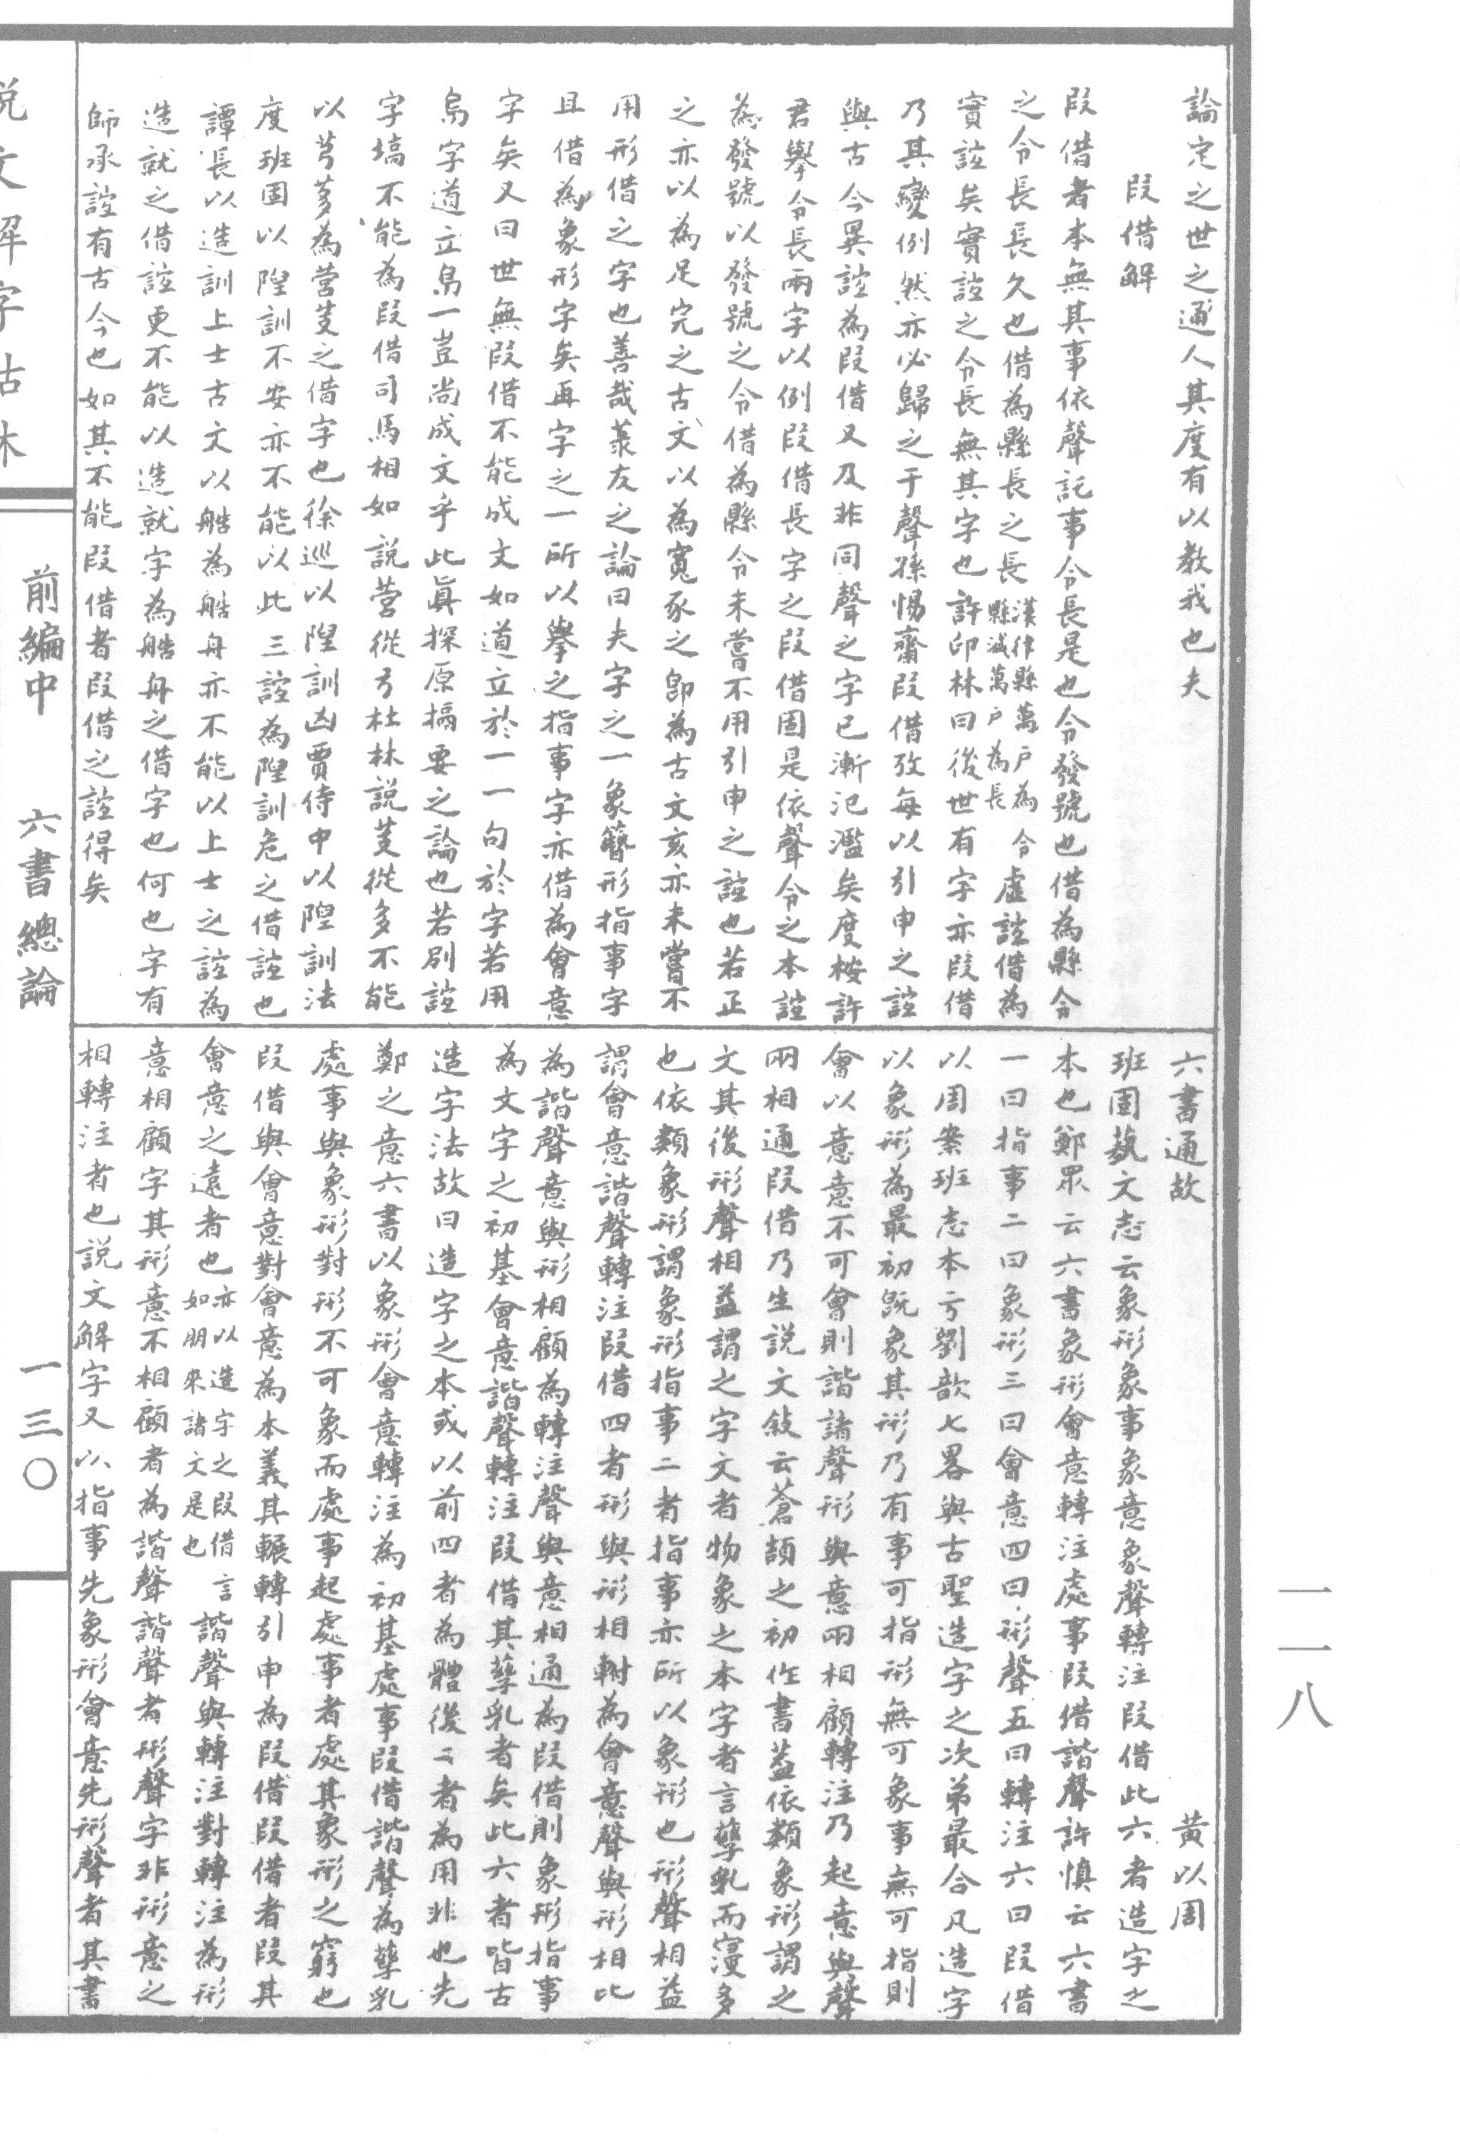 論定之世之通人其度有以教我也夫
叚借解
叚借者本無其事依聲託事令長是也令發號也借為縣令
之令長長久也借為縣長之長漢律縣萬戶為令縣減萬戶為長虛誼借為
實誼矣實誼之令長無其字也許印林曰後世有字亦叚借
乃其變例然亦必歸之于聲孫惕齋叚借攷每以引申之誼
與古今異誼為叚借又及非同聲之字已漸汜濫矣度桉許
君舉令長兩字以例叚借長字之叚借固是依聲令之本誼
為發號以發號之令借為縣令未嘗不用引申之誼也若正
之亦以為足完之古文以為寬豕之卽為古文亥亦未嘗不
用形借之字也善哉菉友之論曰夫字之一象簪形指事字
且借為象形字矣再字之一所以擧之指事字亦借為會意
字矣又曰世無叚借不能成文如道立於一一句於字若用
烏字道立烏一豈尚成文乎此眞探原搹要之論也若別誼
字塙不能為叚借司馬相如說營從弓杜林說芰從多不能
以芎茤為营芰之借字也徐巡以隉訓凶賈侍中以隉訓法
度班固以隉訓不安亦不能以此三誼為隉訓危之借誼也
譚長以造訓上士古文以艁為艁舟亦不能以上士之誼為
造就之借誼更不能以造就字為艁舟之借字也何也字有
師承誼有古今也如其不能叚借者叚借之誼得矣
六書通故
黃以周
班固蓺文志云象形象事象意象聲轉注叚借此六者造字之
本也鄭眾云六書象形會意轉注處事叚借諧聲許慎云六書
一曰指事二曰象形三曰會意四曰形聲五曰轉注六曰叚借
以周案班志本亏劉歆七畧與古聖造字之次弟最合凡造字
以象形為最初旣象其形乃有事可指形無可象事無可指則
會以意意不可會則諧諸聲形與意兩相顧轉注乃起意與聲
兩相通叚借乃生說文敍云蒼頡之初作書葢依類象形謂之
文其後形聲相益謂之字文者物象之本字者言孳乳而寖多
也依類象形謂象形指事二者指事亦所以象形也形聲相益
謂會意諧聲轉注叚借四者形與形相軵為會意聲與形相比
為諧聲意與形相顧為轉注聲與意相通為叚借則象形指事
為文字之初基會意諧聲轉注叚借其孳乳者矣此六者皆古
造字法故曰造字之本或以前四者為體後二者為用非也先
鄭之意六書以象形會意轉注為初基處事叚借諧聲為孳乳
處事與象形對形不可象而處事起處事者處其象形之窮也
叚借與會意對會意為本義其輾轉引申為叚借叚借者叚其
會意之遠者也亦以造字之叚借言如朋來諸文是也諧聲與轉注對轉注為形
意相顧字其形意不相顧者為諧聲諧聲者形聲字非形意之
相轉注者也說文解字又以指事先象形會意先形聲者其書
說文解字詁林
前編中
六書總論
一三〇
一一八